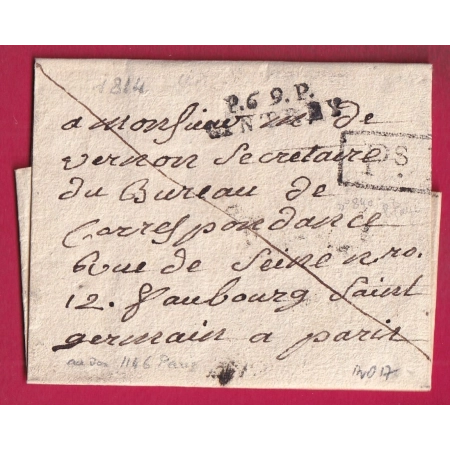 1814
P.69.P.
a monsieur m de
vernon Secretaire
du Bureau de
Correspondance
Rue de Seine nro.
12. faubourg Saint
germain a paris
au dos 1146 Paris